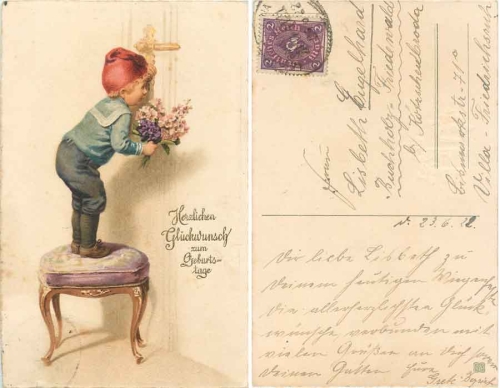 Herzlichen
Glückwunsch
zum
Geburts-
tage
Lisbeth Engelhard
Buchholz-Friedewald
b/ Kötzschenbroda
Villa-
2 2
D. 23.6.22.
Dir liebe Lisbeth zu
Deinem heutigen Wiegenfeste
die allerherzlichsten Glück-
wünsche verbunden mit
vielen Grüßen an Dich
Deinen Gatten Eure